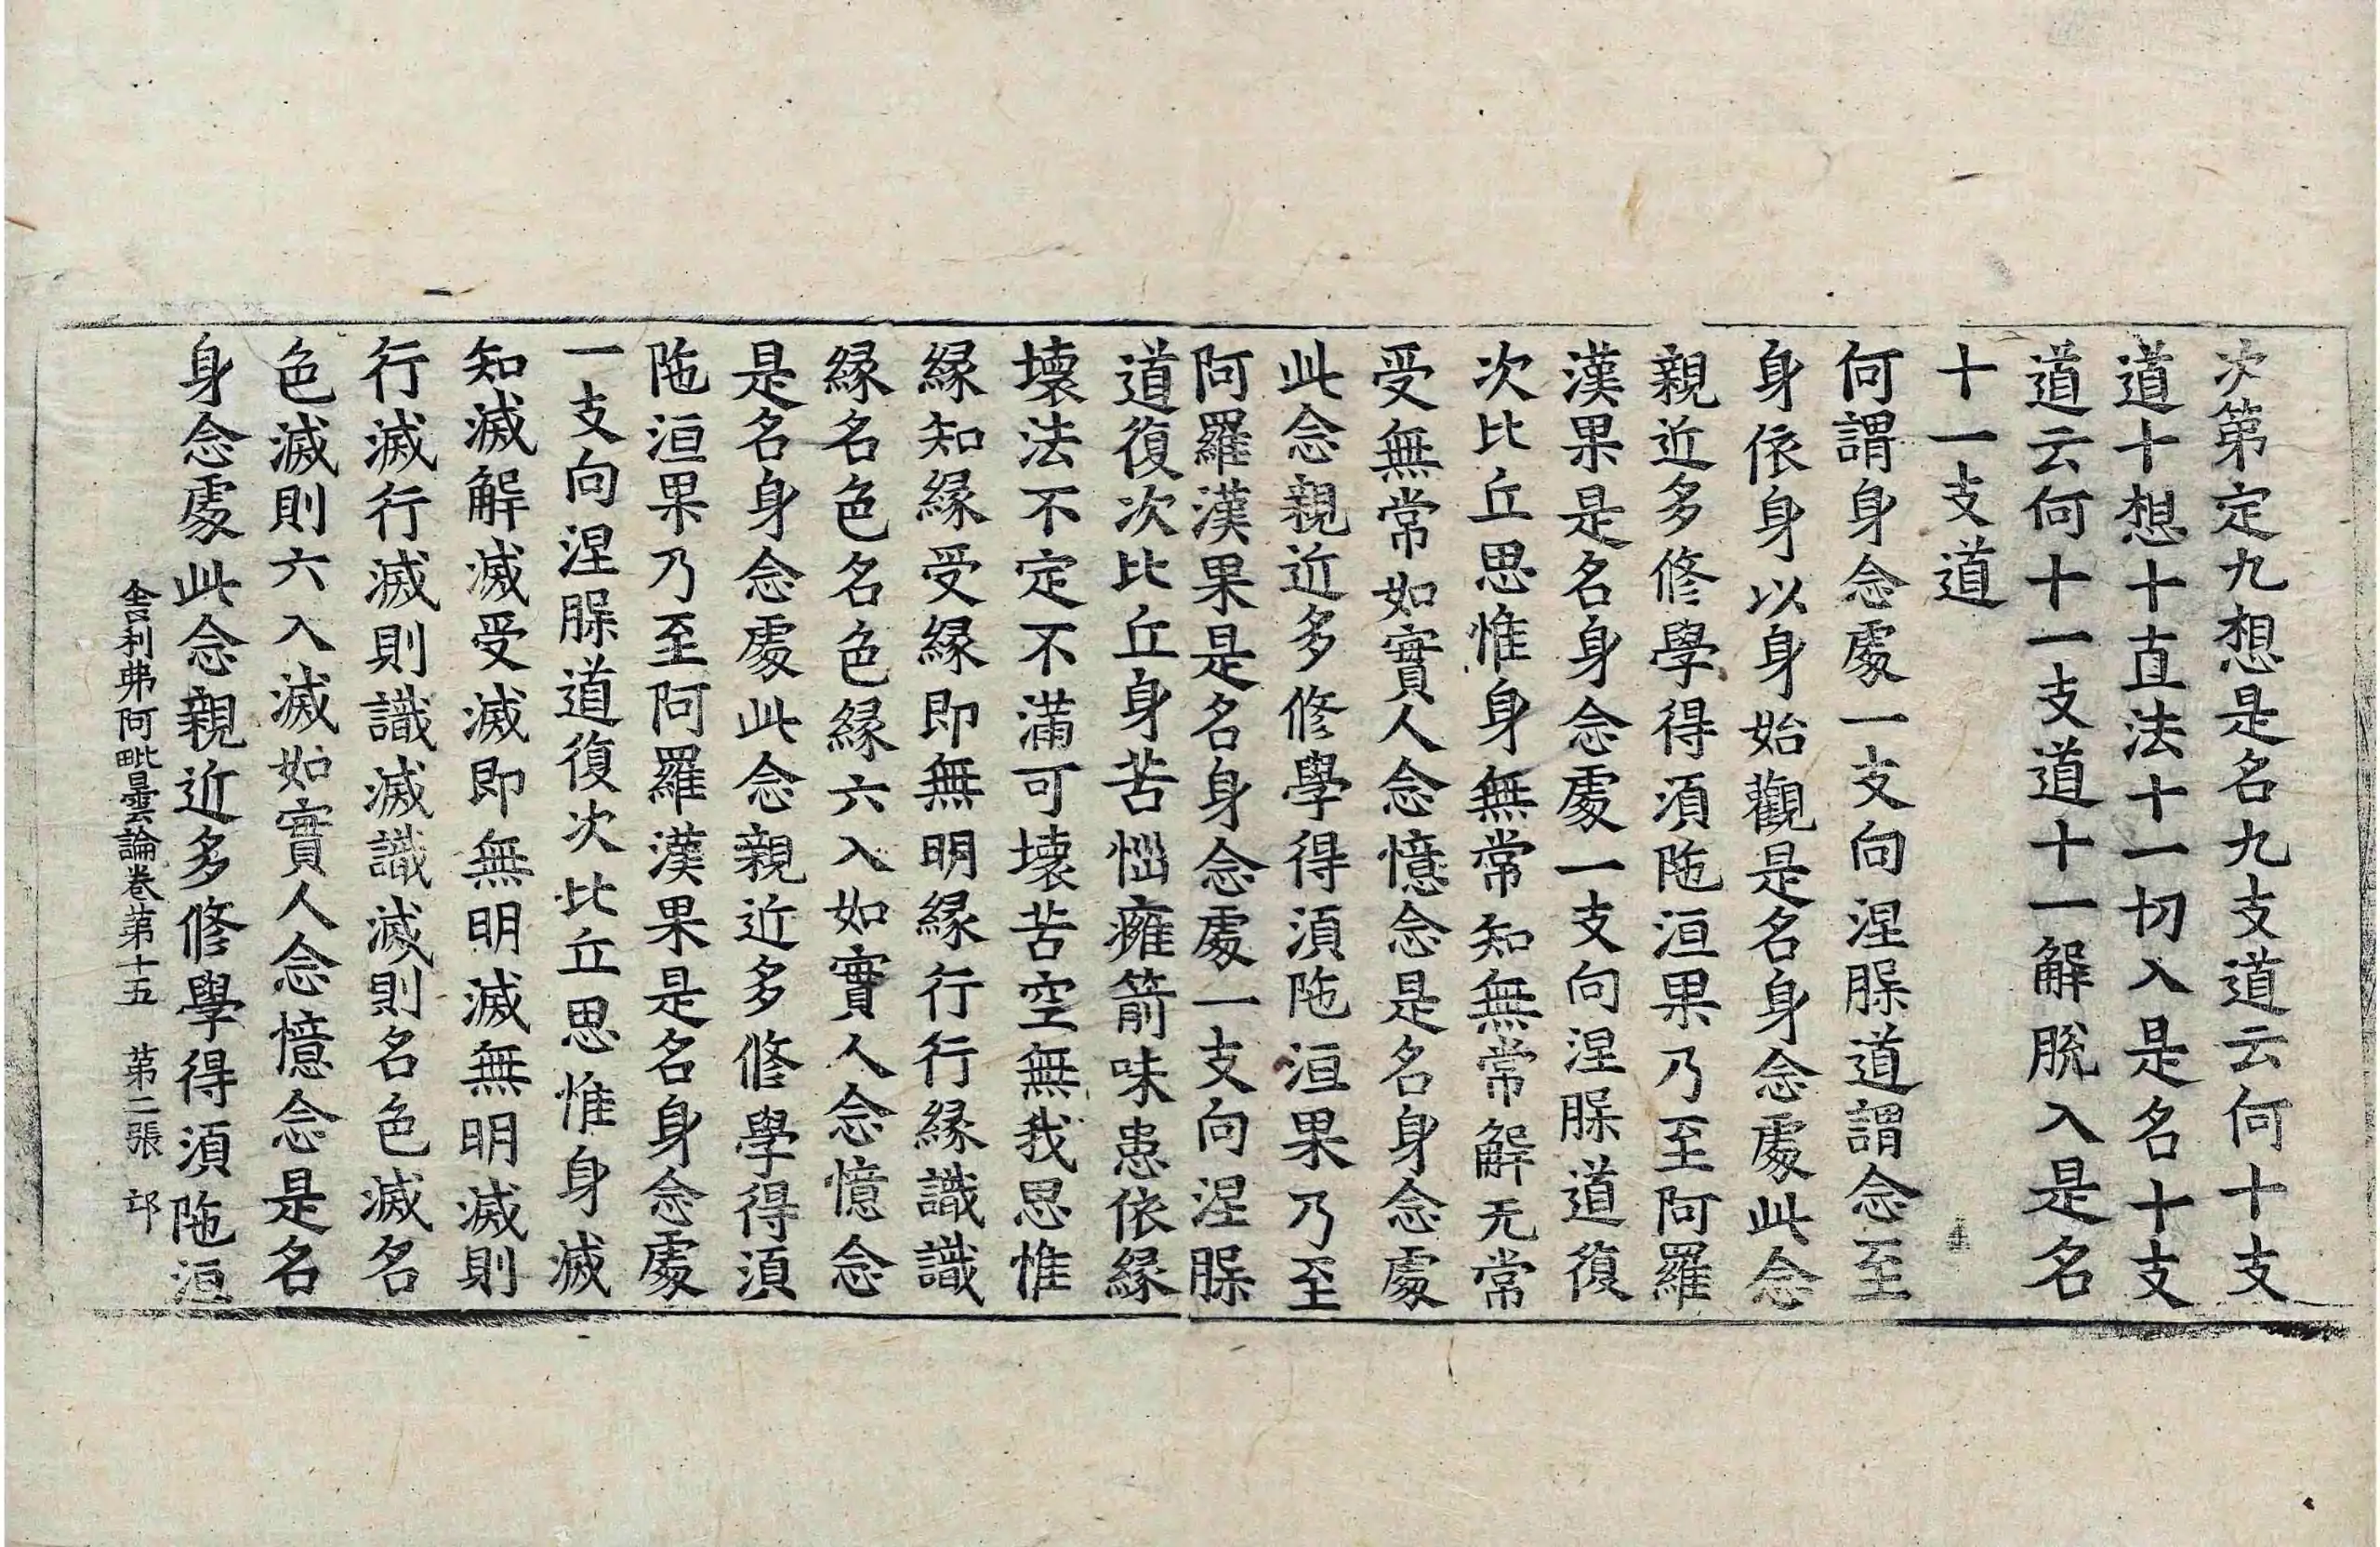 次第定九想是名九支道云何十支
道十想十直法十一切入是名十支
道云何十一支道十一解脫入是名
十一支道
何謂身念處一支向涅槃道謂念至
身依身以身始觀是名身念處此念
親近多修學得湏陁洹果乃至阿羅
漢果是名身念處一支向涅槃道復
次比丘思惟身無常知無常解无常
受無常如實人念憶念是名身念處
此念親近多修學得湏陁洹果乃至
阿羅漢果是名身念處一支向涅槃
道復次比丘身苦惱癰箭味患依縁
壞法不定不滿可壞苦空無我思惟
縁知縁受縁即無明縁行行縁識識
縁名色名色縁六入如實人念憶念
是名身念處此念親近多修學得湏
陁洹果乃至阿羅漢果是名身念處
一支向涅槃道復次比丘思惟身滅
知滅解滅受滅即無明滅無明滅則
行滅行滅則識滅識滅則名色滅名
色滅則六入滅如實人念憶念是名
身念處此念親近多修學得湏陁洹
舍利弗阿毗曇論卷第十五 第二張 邙